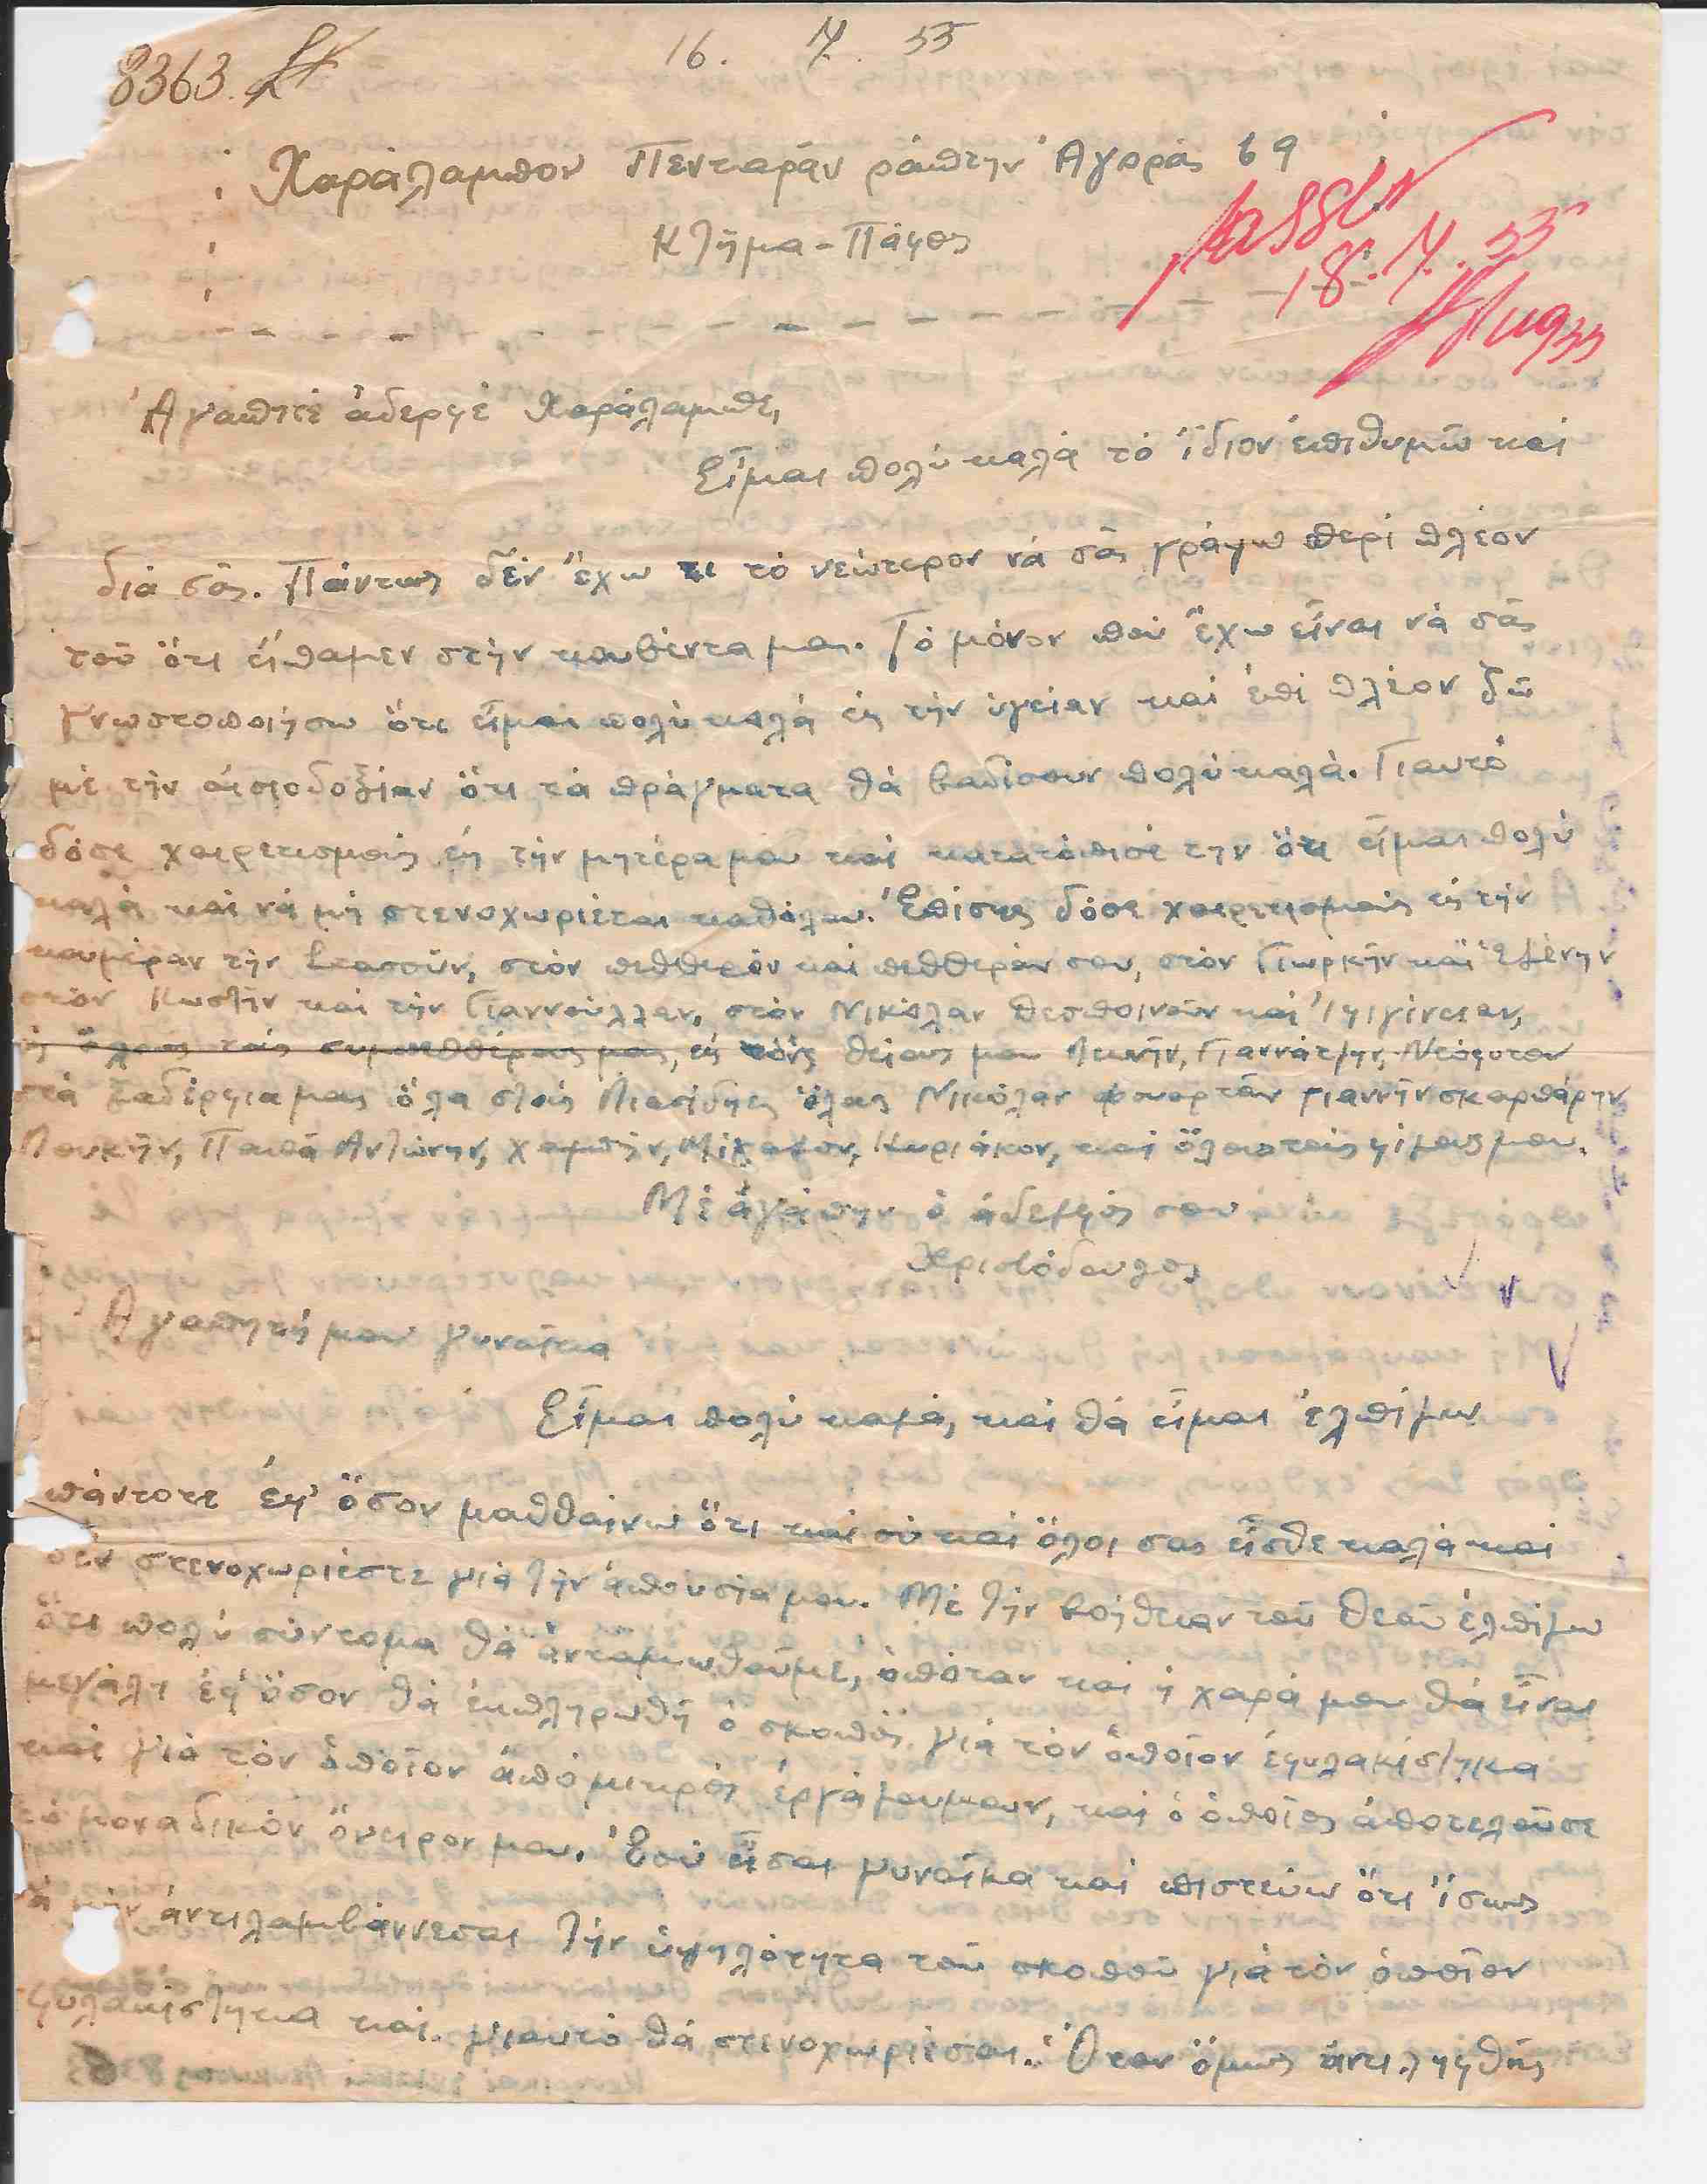 8363
16. 7. 55
Χαράλαμπον Πενταράν ράπτην Ἀγορᾶς 69
Κτῆμα - Πάφος
passed
18. 7. 55
Ἀγαπητέ ἀδερφέ Χαράλαμπε,
Εἶμαι πολύ καλά τό ἴδιον ἐπιθυμῶ καί
διά σᾶς. Πάντως δέν ἔχω τι τό νεώτερον νά σᾶς γράψω περί πλέον
τοῦ ὅτι εἴπαμεν στήν κουβέντα μας. Τό μόνον πού ἔχω εἶναι νά σᾶς
γνωστοποιήσω ὅτι εἶμαι πολύ καλά εἰς τήν ὑγείαν καί ἐπί πλέον ζῶ
μέ τήν αἰσιοδοξίαν ὅτι τά πράγματα θά βαδίσουν πολύ καλά. Γιαυτό
δόσε χαιρετισμούς εἰς τήν μητέρα μου καί κατατόπισέ την ὅτι εἶμαι πολύ
καλά καί νά μή στενοχωριέται καθόλου. Ἐπίσης δόσε χαιρετισμούς εἰς τήν
κουμέραν τήν Βρασούν, στόν πεθθερόν καί πεθθεράν σου, στόν Γιωρκήν καί Ἑλένην
στόν Κωστήν καί τήν Γιαννούλλαν, στόν Νικόλαν Δεσποινούν καί Ἰφιγένειαν,
εἰς ὅλους τούς συμπεθθέρους μας, εἰς τούς θείους μου Λεωνήν, Γιαννάτζιην, Νεόφυτον
στά ξαδέρφια μας ὅλα στούς Λιασίδης ὅλους Νικόλαν φουρτάν γιαννήν σκαρπάρην
Λουκήν, Παπά Ἀντώνην, χαμπήν, Μίχαλον, Κυριάκον, καί ὅλους τούς φίλους μου.
Μέ ἀγάπην ὁ ἀδελφός σου
Χριστόδουλος
Ἀγαπητή μου γυναίκα
Εἶμαι πολύ καλά, καί θά εἶμαι ἐλπίζων
πάντοτε ἐφ' ὅσον μαθθαίνω ὅτι καί σύ καί ὅλοι σας εἶσθε καλά καί
δέν στενοχωριέστε γιά τήν ἀπουσία μου. Μέ τήν βοήθειαν τοῦ Θεοῦ ἐλπίζω
ὅτι πολύ σύντομα θά ἀνταμωθοῦμε, ὁπόταν καί ἡ χαρά μου θά εἶναι
μεγάλη ἐφ' ὅσον θά ἐκπληρωθῆ ὁ σκοπός γιά τόν ὁποῖον ἐφυλακίστηκα
καί γιά τόν ὁποῖον ἀπό μικρός ἐργάζουμουν, καί ὁ ὁποῖος ἀποτελοῦσε
τό μοναδικόν ὄνειρον μου. Ἐσύ εἶσαι γυναῖκα καί πιστεύω ὅτι ἴσως
νά μήν ἀντιλαμβάννεσαι τήν ὑψηλότητα τοῦ σκοποῦ γιά τόν ὁποῖον
φυλακίστηκα καί γιαυτό θά στενοχωριέσαι. Ὅταν ὅμως ἀντιληφθῆς